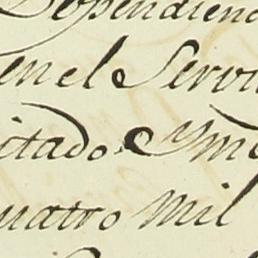 Dependienc
en el Servi
itado Ym
uatro Mil